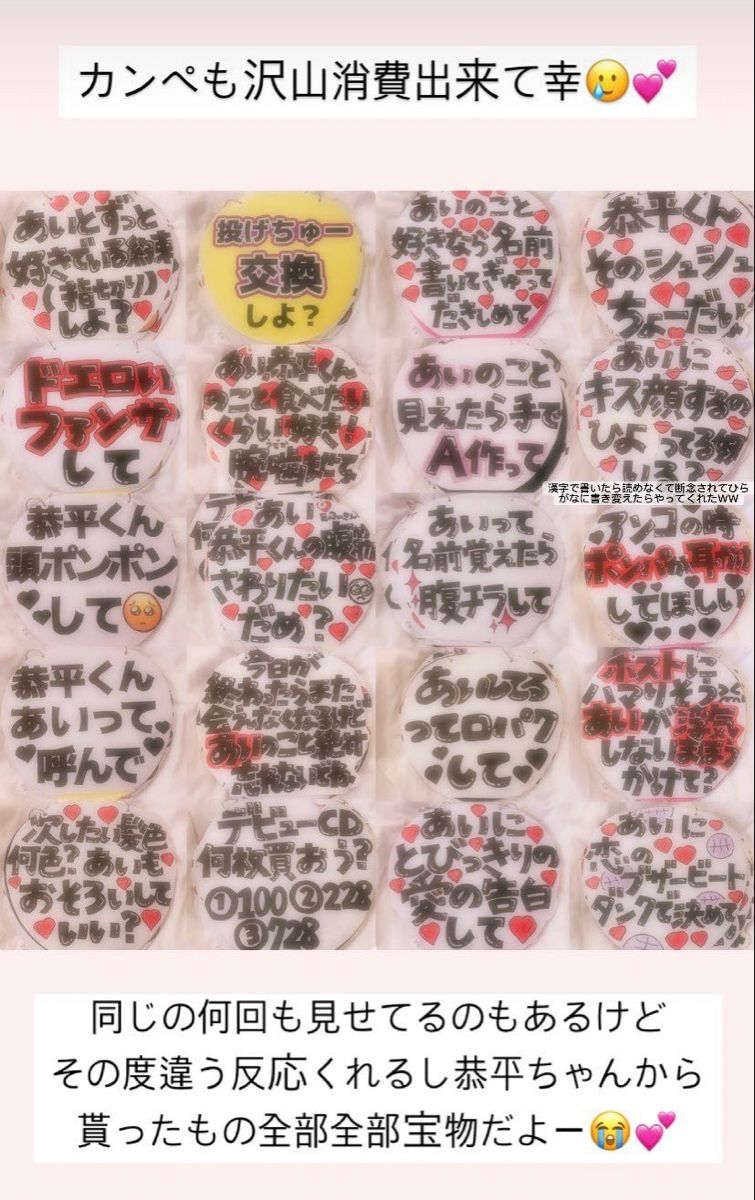 カンペも沢山消費出来て幸🥲💕
あいとずっと
好きでいる約束
(指切り)
しよ?
投げちゅー
交換
しよ?
あいのこと
好きなら名前
書いてぎゅって
だきしめて
恭平くん
そのシュシュ
ちょーだい
ドエロい
ファンサ
して
あい恭平くん
のこと食べたい
くらい好き!
腕噛ませて
あいのこと
見えたら手で
A作って
あいに
キス顔するの
ひよってる奴
いる?
漢字で書いたら読めなくて断念されてひら
がなに書き変えたらやってくれたww
恭平くん
頭ポンポン
して🥺
あい
恭平くんの腹筋
さわりたい
だめ?
あいって
名前覚えたら
腹チラして
アンコの時
ポンパか耳かけ
してほしい
恭平くん
あいって
呼んで
今日が
終わったらまた
会えなくなるけど
あいのこと絶対
忘れないでね
あいしてる
って口パク
して
ホストに
ハマりそう
あいが浮気
しないまほう
かけて?
次したい髪色
何色?あいも
おそろいして
いい?
デビューCD
何枚買おう?
①100②228
③728
あいに
とびっきりの
愛の告白
して
あいに
恋の
ブザービート
ダンクで決めて!
同じの何回も見せてるのもあるけど
その度違う反応くれるし恭平ちゃんから
貰ったもの全部全部宝物だよー😭💕